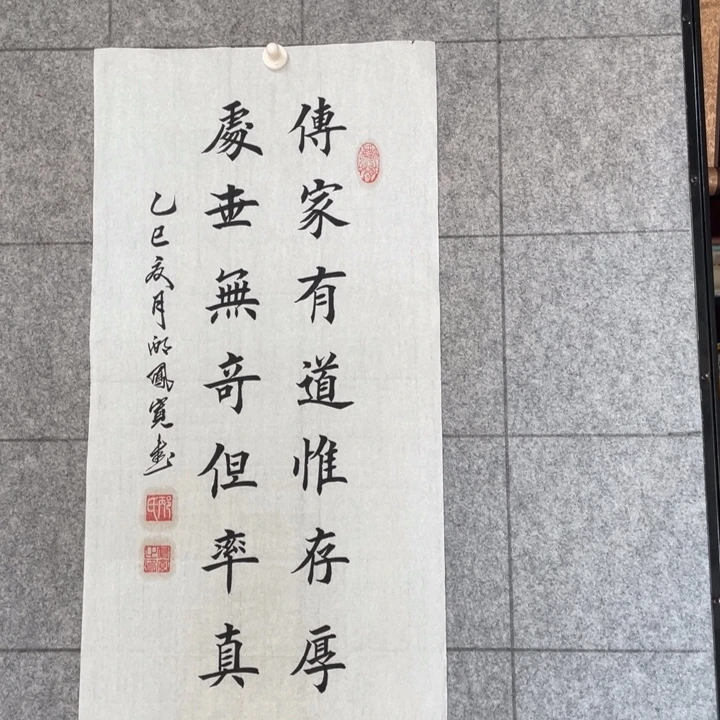 傳家有道惟存厚
處世無奇但率真
乙巳夏月邴鳳寬書